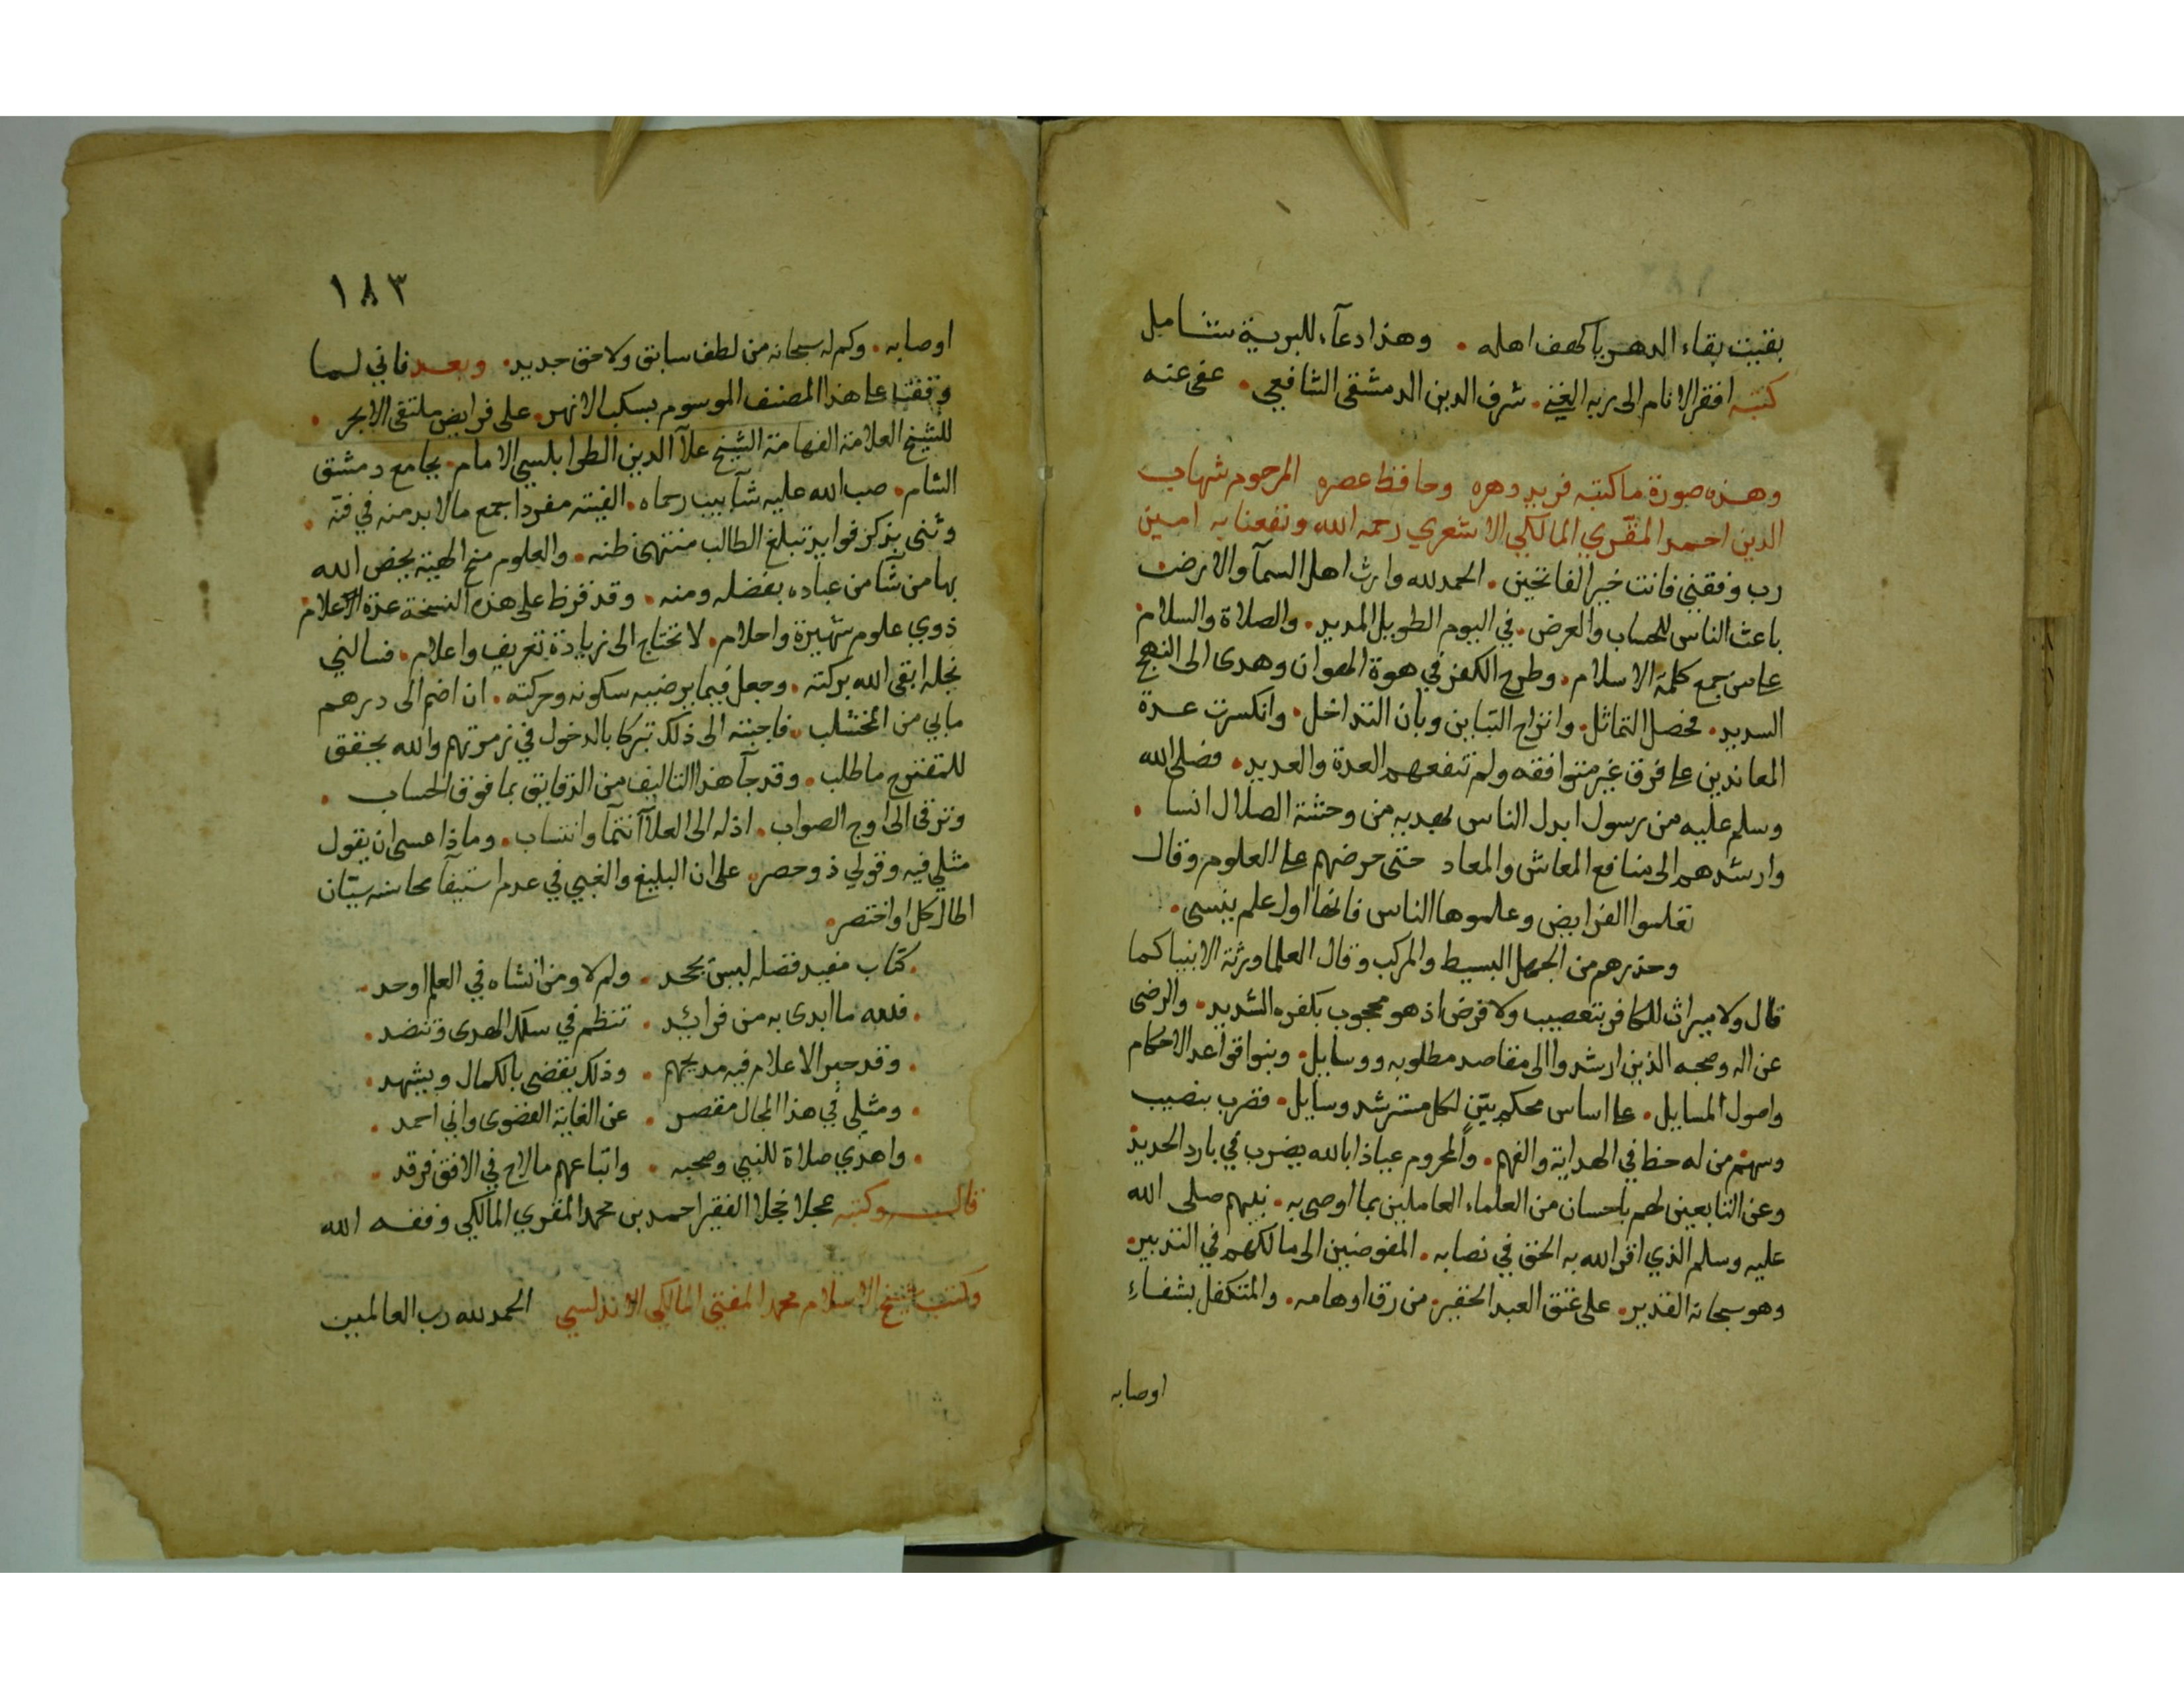 بقيت بقاء الدهر يا كهف اهله • وهذا دعآء للبرية شامل
كتبه افقر الانام الى ربه الغني • شرف الدين الدمشقى الشافعي • عفى عنه
وهذه صورة ما كتبه فريد دهره وحافظ عصره المرحوم شهاب
الدين احمد المقري المالكي الاشعري رحمه الله ونفعنا به امين
رب وفقني فانت خير الفاتحين • الحمد لله وارث اهل السمآ والارض
باعث الناس للحساب والعرض • في اليوم الطويل المديد • والصلاة والسلام
على من جمع كلمة الاسلام • وطرح الكفر في هوة الهوان وهدى الى النهج
السديد • فحصل التماثل • وانزاح التباين وبان التداخل • وانكسرت عدة
المعاندين على فرق غير متوافقه ولم تنفعهم العدة والعديد • فصلى الله
وسلم عليه من رسول ابدل الناس بهديه من وحشة الضلال انسا •
وارشدهم الى منافع المعاش والمعاد حتى حرضهم على العلوم وقال
تعلموا الفرايض وعلموها الناس فانها اول علم ينسى •
وحذرهم من الجهل البسيط والمركب وقال العلما ورثة الانبيا كما
قال ولا ميراث للكافر بتعصيب ولا فرض اذ هو محجوب بكفره الشديد • والرضى
عن اله وصحبه الذين ارشدوا الى مقاصد مطلوبه ووسايل • وبنوا قواعد الاحكام
واصول المسايل • على اساس محكم بيّن لكل مسترشد وسايل • فضرب بنصيب
وسهم من له حظ في الهداية والفهم • والمحروم عياذا بالله يضرب في بارد الحديد
وعن التابعين لهم باحسان من العلماء العاملين بما اوصى به • نبيهم صلى الله
عليه وسلم الذي اقر الله به الحق في نصابه • المفوضين الى مالكهم في التدبير
وهو سبحانه القدير • على عتق العبد الحقير • من رق اوهامه • والمتكفل بشفاء
اوصابه
١٨٣
اوصابه • وكم له سبحانه من لطف سابق ولاحق جديد • وبعد فاني لما
وقفت على هذا المصنف الموسوم بسكب الانهر • على فرايض ملتقى الابحر •
للشيخ العلامة الفهامة الشيخ علآ الدين الطرابلسي الامام • بجامع دمشق
الشام • صب الله عليه شآبيب رحماه • الفيته مفردا جمع ما لابد منه في فنه •
وثنى بذكر فوايد تبلغ الطالب منتهى ظنه • والعلوم منح الهية يخص الله
بها من شآ من عباده بفضله ومنه • وقد قرظ على هذه النسخة عدة اعلام
ذوي علوم شهيرة واحلام • لا تحتاج الى زيادة تعريف واعلام • فسالني
نجله ابقى الله بركته • وجعل فيما يرضيه سكونه وحركته • ان اضم الى درهم
مابي من المخشلب • فاجبته الى ذلك تبركا بالدخول في زمرتهم والله يحقق
للمتفتوح ما طلب • وقد جآ هذا التاليف من الرقايق بما فوق الحساب •
وترقى الى اوج الصواب • اذ له الى العلآ انتمآ وانتساب • وماذا عسى ان يقول
مثلي فيه وقولي ذو حصر • على ان البليغ والغبي في عدم استيفآ محاسنه سيّان
اطال كل او اختصر •
• كتاب مفيد فضله ليس يجحد • ولم لا ومن انشاه في العلم اوحد •
• فلله ما ابدى به من فرائد • تنظم في سلك الهدى وتنضد •
• وقد حبر الاعلام فيه مديحهم • وذلك يقضى بالكمال ويشهد •
• ومثلي في هذا المجال مقصر • عن الغاية القصوى واني احمد •
• واهدي صلاة للنبي وصحبه • واتباعهم ما لاح في الافق فرقد •
قال وكتبه عجلا خجلا الفقير احمد بن محمد المقري المالكي وفقه الله
وكتب شيخ الاسلام محمد المفتي المالكي الاندلسي الحمد لله رب العالمين